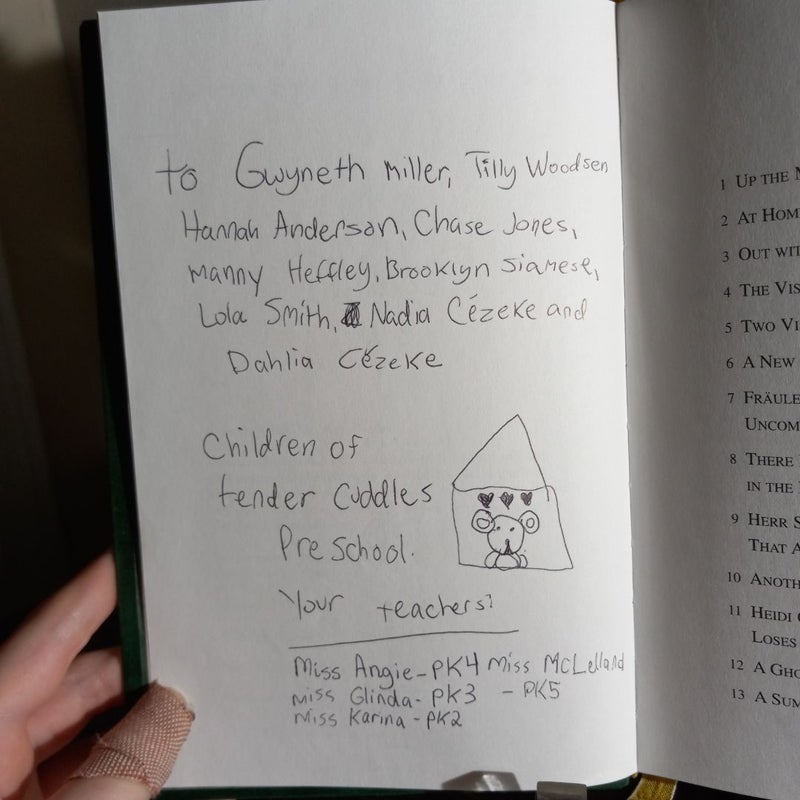 to Gwyneth Miller, Tilly Woodsen
Hannah Anderson, Chase Jones,
Manny Heffley, Brooklyn Siamese,
Lola Smith, Nadia Cézeke and
Dahlia Cézeke
Children of
tender Cuddles
Preschool.
Your teachers:
Miss Angie - PK4 Miss McLelland
Miss Glinda - PK3 - PK5
Miss Karina - PK2
1 UP THE
2 AT HOM
3 OUT WIT
4 THE VIS
5 TWO VI
6 A NEW
7 FRÄULE
UNCOM
8 THERE
IN THE
9 HERR S
THAT A
10 ANOTH
11 HEIDI
LOSES
12 A GHO
13 A SUM